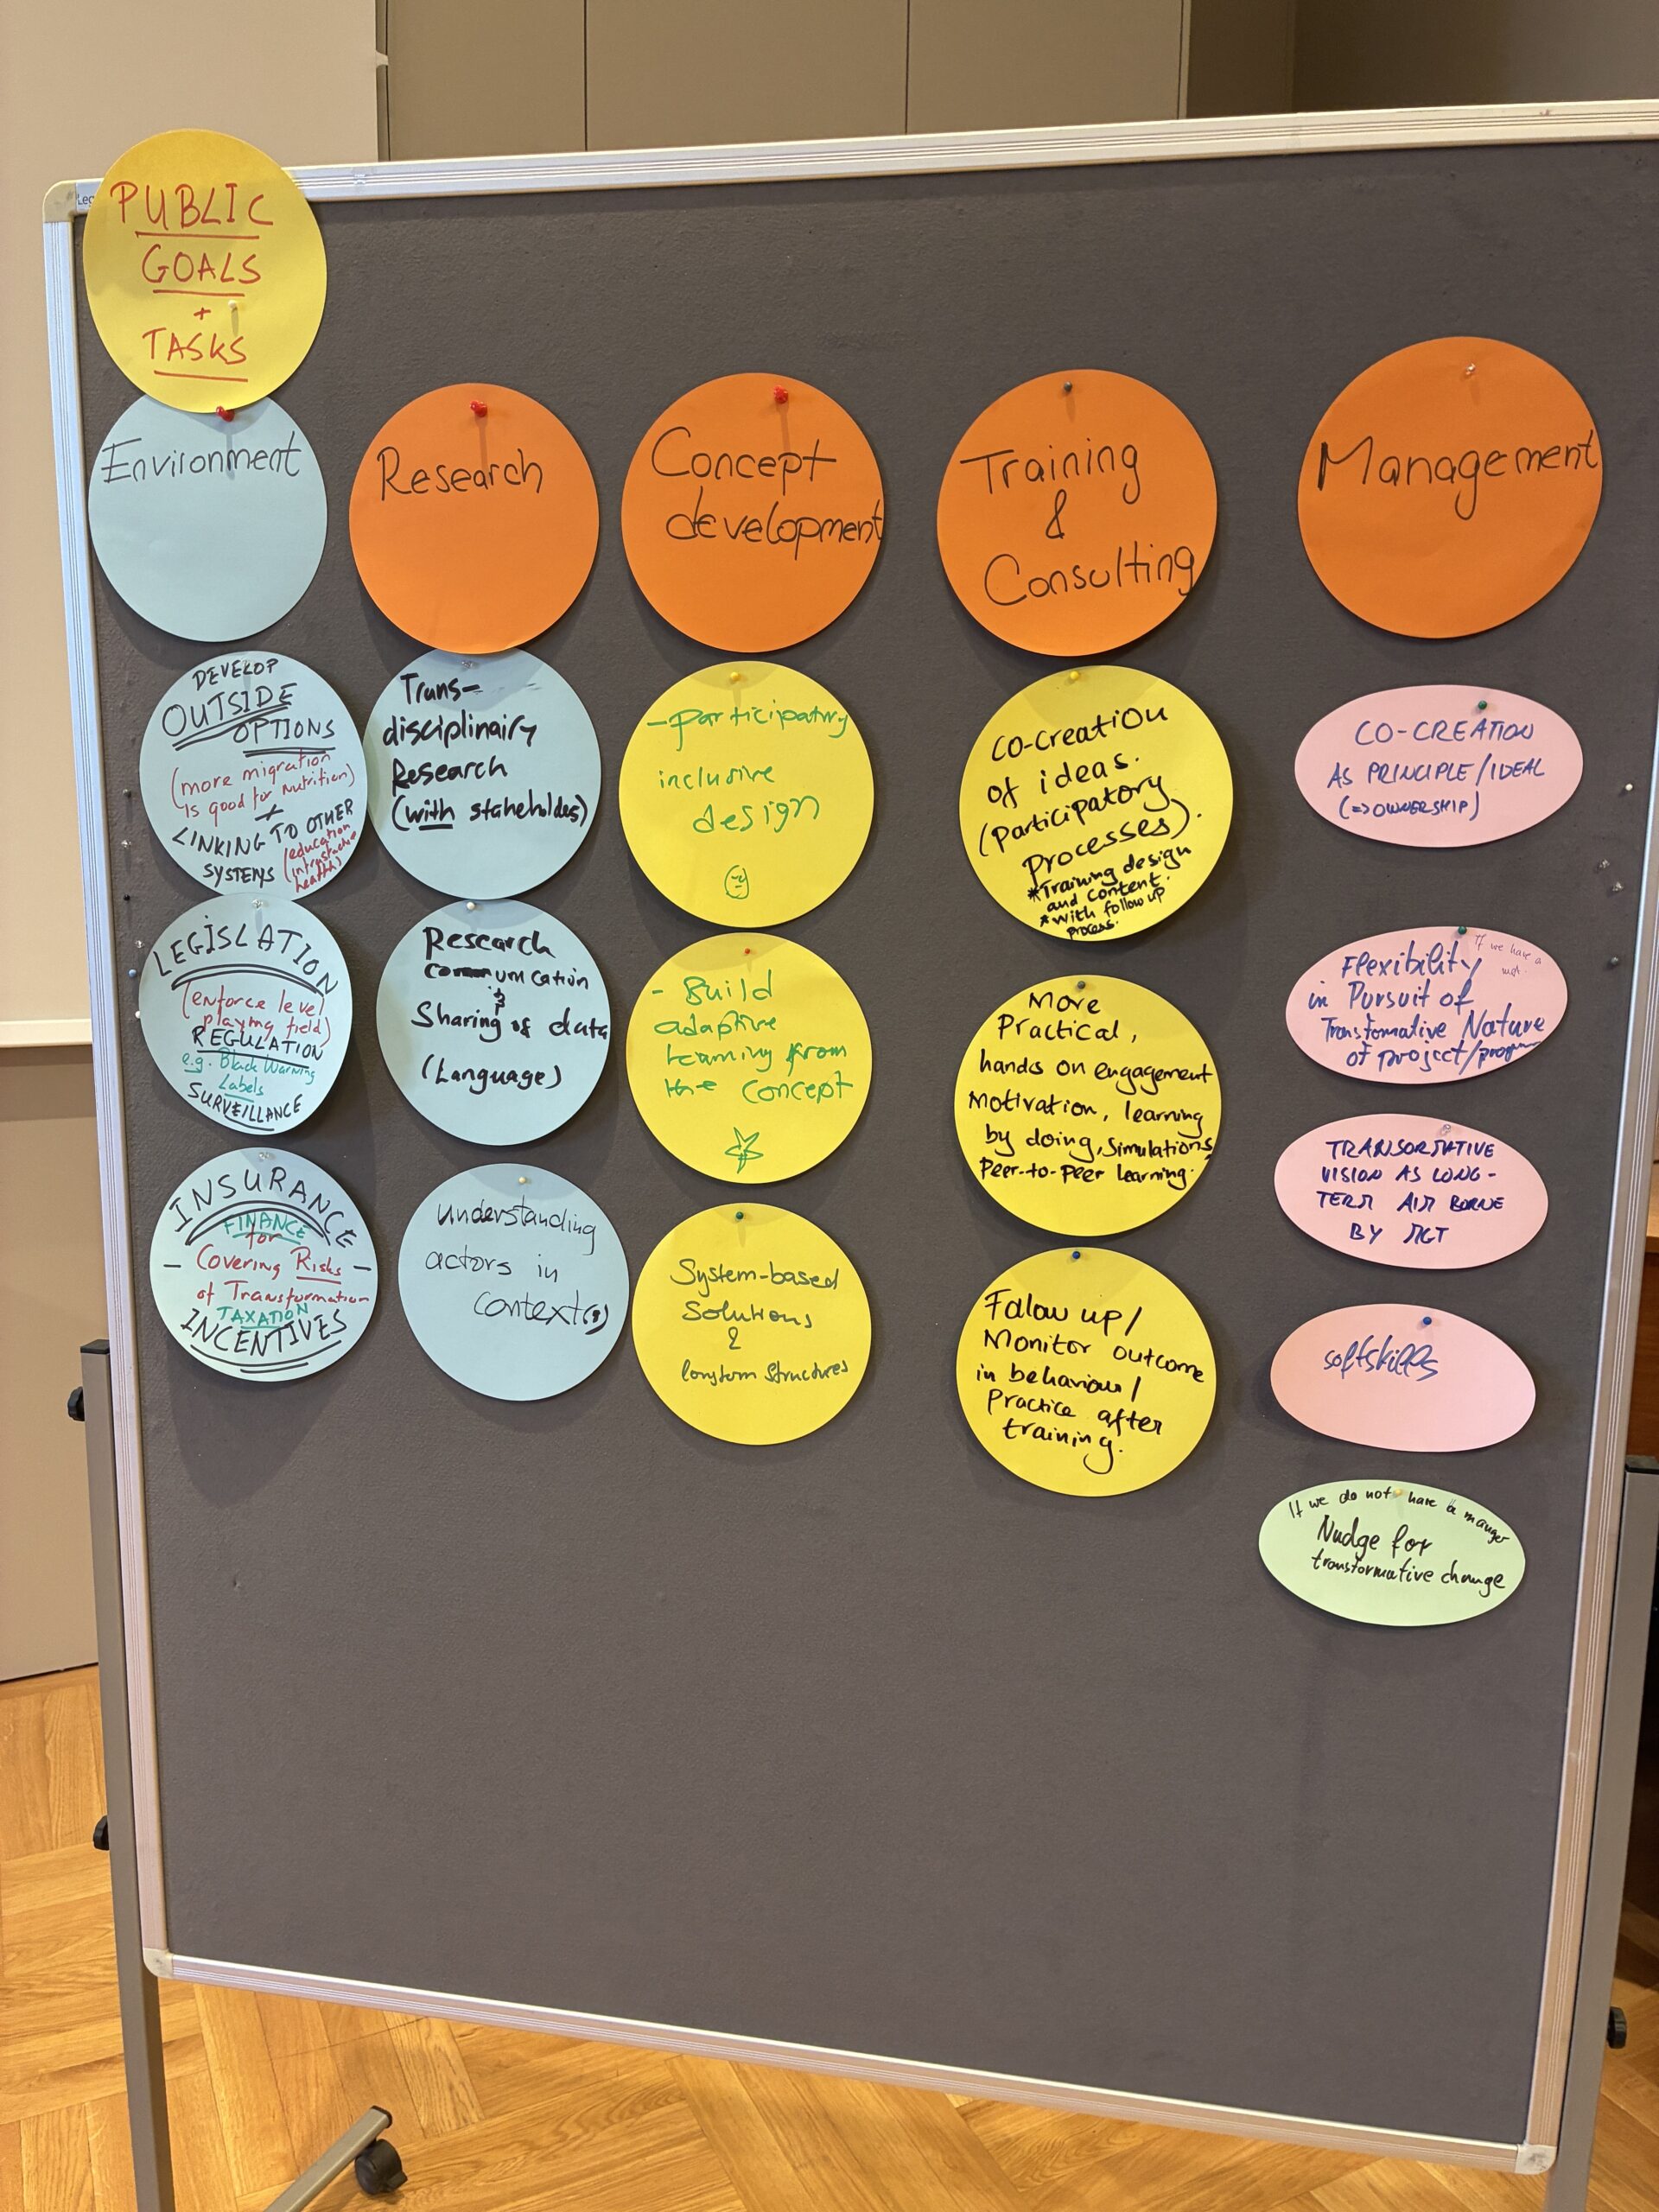 PUBLIC
GOALS
+
TASKS
Environment
DEVELOP
OUTSIDE
OPTIONS
(more migration
is good for nutrition)
+
LINKING TO OTHER
SYSTEMS
(education
health)
LEGISLATION
(enforce level
playing field)
REGULATION
e.g. Black Warning
Labels
SURVEILLANCE
INSURANCE
FINANCE
for
- Covering Risks -
of Transformation
TAXATION
INCENTIVES
Research
Trans-
disciplinairy
Research
(with stakeholdes)
Research
communcation
&
Sharing of data
(Language)
understanding
actors in
context(s)
Concept
development
- participatory
inclusive
design
- Build
adaptive
learning from
the concept
System-based
Solutions
&
longterm structures
Training
&
Consulting
CO-Creation
of ideas.
(Participatory
Processes).
*Training design
and content.
*with follow up
process.
More
Practical,
hands on engagement
Motivation, learning
by doing, simulations,
Peer-to-Peer learning.
Follow up/
Monitor outcome
in behaviour/
Practice after
training.
Management
CO-CREATION
AS PRINCIPLE/IDEAL
(=> OWNERSHIP)
If we have a
not
Flexibility
in Pursuit of
Transformative Nature
of project/program
TRANSORMATIVE
VISION AS LONG-
TERM AIM BORNE
BY MGT
softskills
If we do not have a manger
Nudge for
transformative change